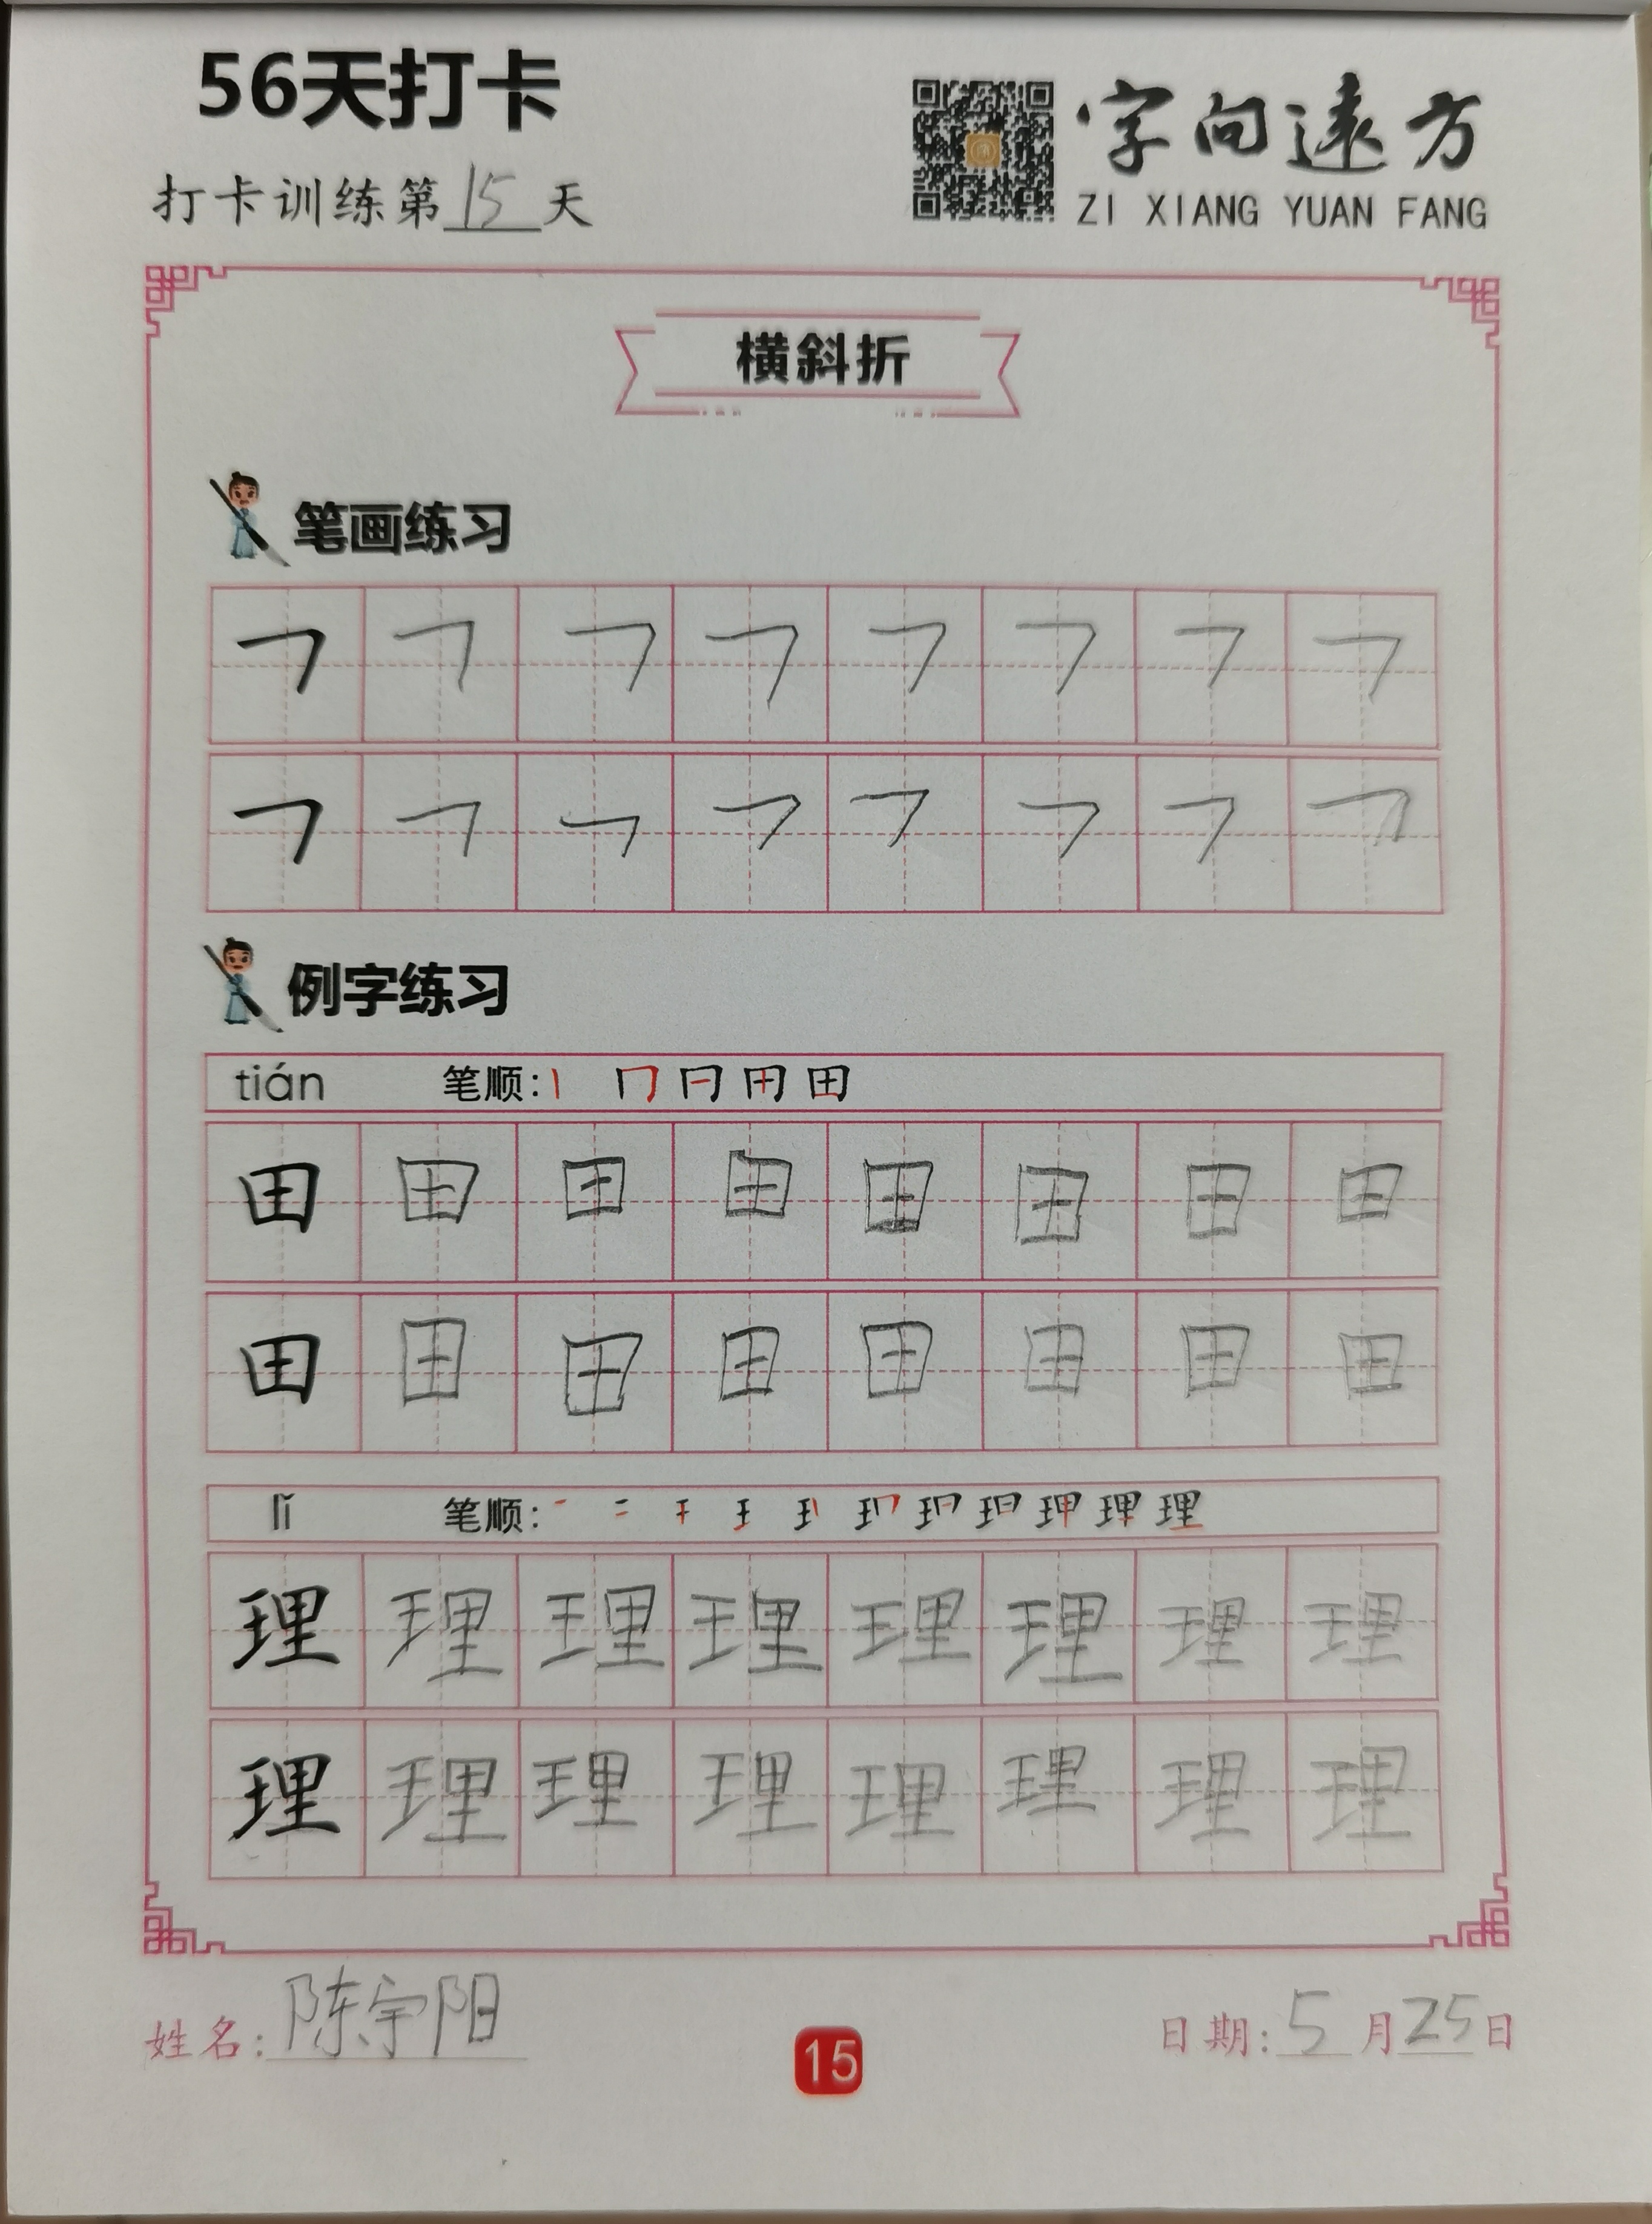 56天打卡
字向遠方
打卡训练第15天
ZI XIANG YUAN FANG
横斜折
笔画练习
㇕ ㇕ ㇕ ㇕ ㇕ ㇕ ㇕ ㇕
㇕ ㇕ ㇕ ㇕ ㇕ ㇕ ㇕ ㇕
例字练习
tián 笔顺:
田 田 田 田 田 田 田 田
田 田 田 田 田 田 田 田
lǐ 笔顺:
理 理 理 理 理 理 理 理
理 理 理 理 理 理 理 理
姓名:陈宇阳
日期:5月25日
15